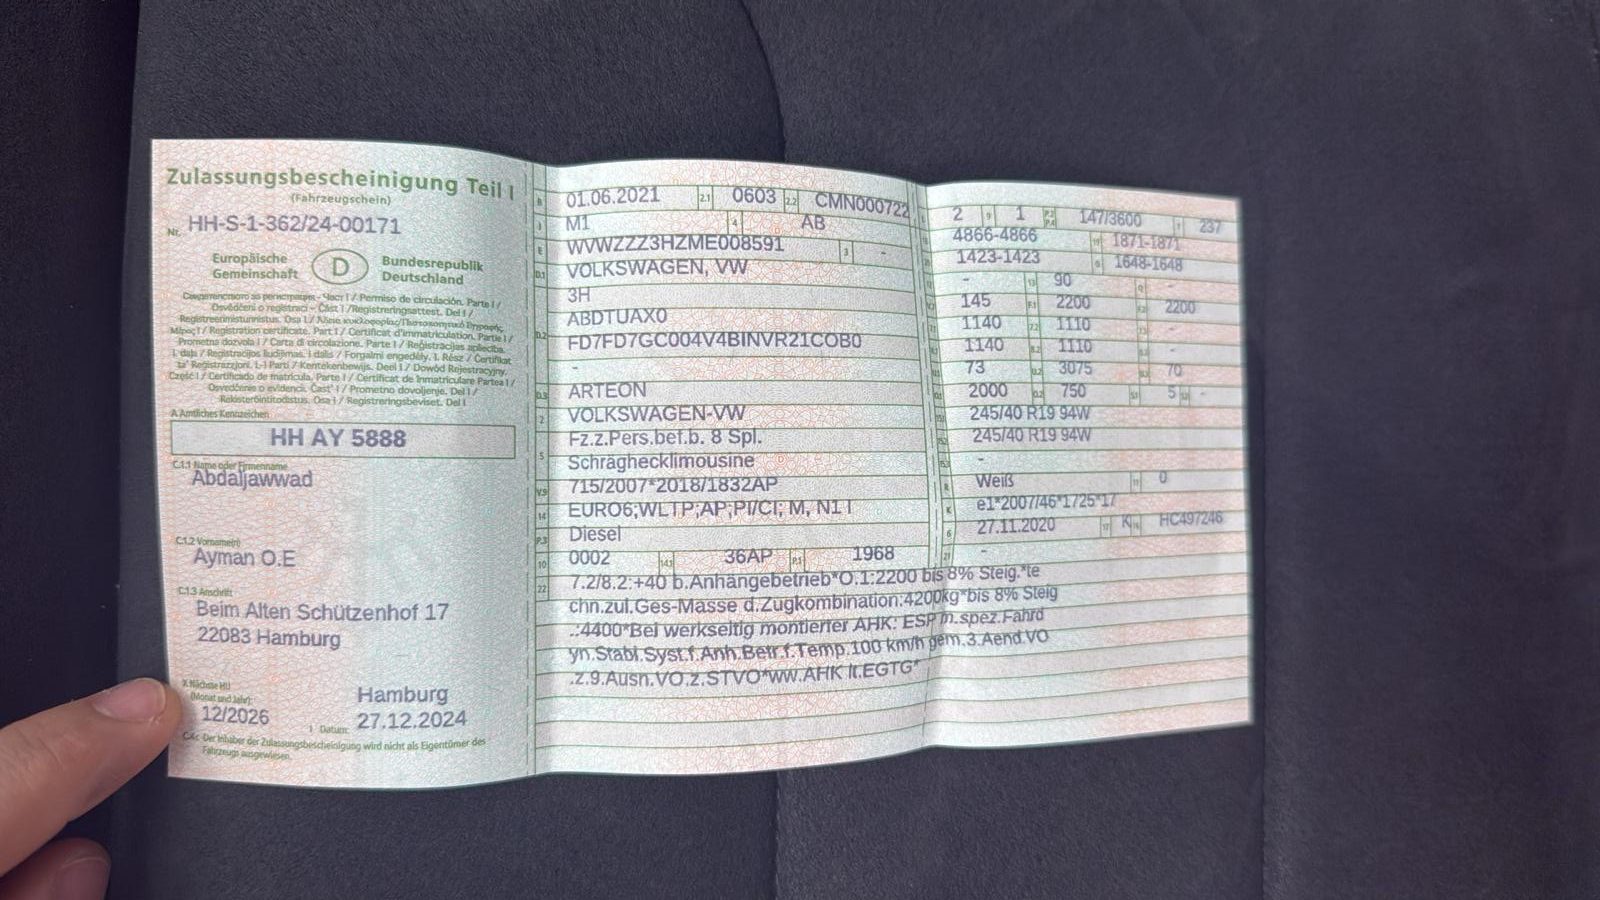 Zulassungsbescheinigung Teil I
(Fahrzeugschein)
Nr. HH-S-1-362/24-00171
Europäische Gemeinschaft
D
Bundesrepublik Deutschland
Permiso de circulación. Parte I /
Osvědčení o registraci - Část I / Registreringsattest. Del I /
Registreerimistunnistus. Osa I /
Registration certificate. Part I / Certificat d'immatriculation. Partie I /
Prometna dozvola I / Carta di circolazione. Parte I / Reģistrācijas apliecība.
I. daļa / Registracijos liudijimas. I dalis / Forgalmi engedély. I. Rész / Ċertifikat
ta' Reġistrazzjoni. L-I Parti / Kentekenbewijs. Deel I / Dowód Rejestracyjny.
Część I / Certificado de matrícula. Parte I / Certificat de înmatriculare Partea I /
Osvedčenie o evidencii. Časť I / Prometno dovoljenje. Del I /
Rekisteröintitodistus. Osa I / Registreringsbeviset. Del I
A Amtliches Kennzeichen
HH AY 5888
C.1.1 Name oder Firmenname
Abdaljawwad
C.1.2 Vorname(n)
Ayman O.E
C.1.3 Anschrift
Beim Alten Schützenhof 17
22083 Hamburg
X Nächste HU
(Monat und Jahr):
12/2026
Hamburg
I Datum: 27.12.2024
C.4c Der Inhaber der Zulassungsbescheinigung wird nicht als Eigentümer des
Fahrzeugs ausgewiesen.
B 01.06.2021 2.1 0603 2.2 CMN000722
J M1 4 AB
E WVWZZZ3HZME008591 3 -
D.1 VOLKSWAGEN, VW
3H
ABDTUAX0
D.2 FD7FD7GC004V4BINVR21COB0
-
D.3 ARTEON
2 VOLKSWAGEN-VW
Fz.z.Pers.bef.b. 8 Spl.
5 Schräghecklimousine
V.9 715/2007*2018/1832AP
14 EURO6;WLTP;AP;PI/CI; M, N1 I
P.3 Diesel
10 0002 14.1 36AP P.1 1968
22 7.2/8.2:+40 b.Anhängebetrieb*O.1:2200 bis 8% Steig.*te
chn.zul.Ges-Masse d.Zugkombination:4200kg*bis 8% Steig
.:4400*Bei werkseitig montierter AHK: ESP m.spez.Fahrd
yn.Stabi.Syst.f.Anh.Betr.f.Temp.100 km/h gem.3.Aend.VO
.z.9.Ausn.VO.z.STVO*ww.AHK lt.EGTG*
2 9 1 147/3600 T 237
4866-4866 1871-1871
1423-1423 G 1648-1648
- 13 90 Q -
145 F.1 2200 2200
1140 7.2 1110 -
1140 8.2 1110 -
73 U.2 3075 70
2000 O.2 750 S.1 5 -
245/40 R19 94W
245/40 R19 94W
-
R Weiß 11 0
K e1*2007/46*1725*17
6 27.11.2020 17 K HC497246
21 -